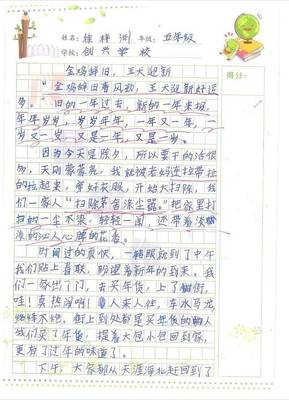 姓名：桂梓 年级：五年级
学校：创兴学校
得分：
金鸡辞旧，玉犬迎新
“金鸡辞旧看风劲，玉犬迎新好运
多。”旧的一年过去，新的一年来临，
年年岁岁，岁岁年年，一年又一年，一
岁又一岁，又是一年，又是一岁。
因为今天是除夕，所以要干的活很
多，天刚蒙蒙亮，我就被老妈连拉带扯
的拉起来，穿好衣服，开始大扫除，我
们一家人“扫除茅舍涤尘嚣”。把家里打
扫的一尘不染，轻轻一闻，还带着淡
淡的沁人心脾的花香。
时间过的真快，一转眼就到了中午
我们贴上春联，盼望着新年的到来，我
们一家出了门，去买年货，上了街，
哇！真热闹啊！人来人往，车水马龙，
络绎不绝，街上到处都是买年货的人
我们买了年货，提着大包小包回到家，
更有了过年的味道了。
下午，大家都从天涯海北赶回到了